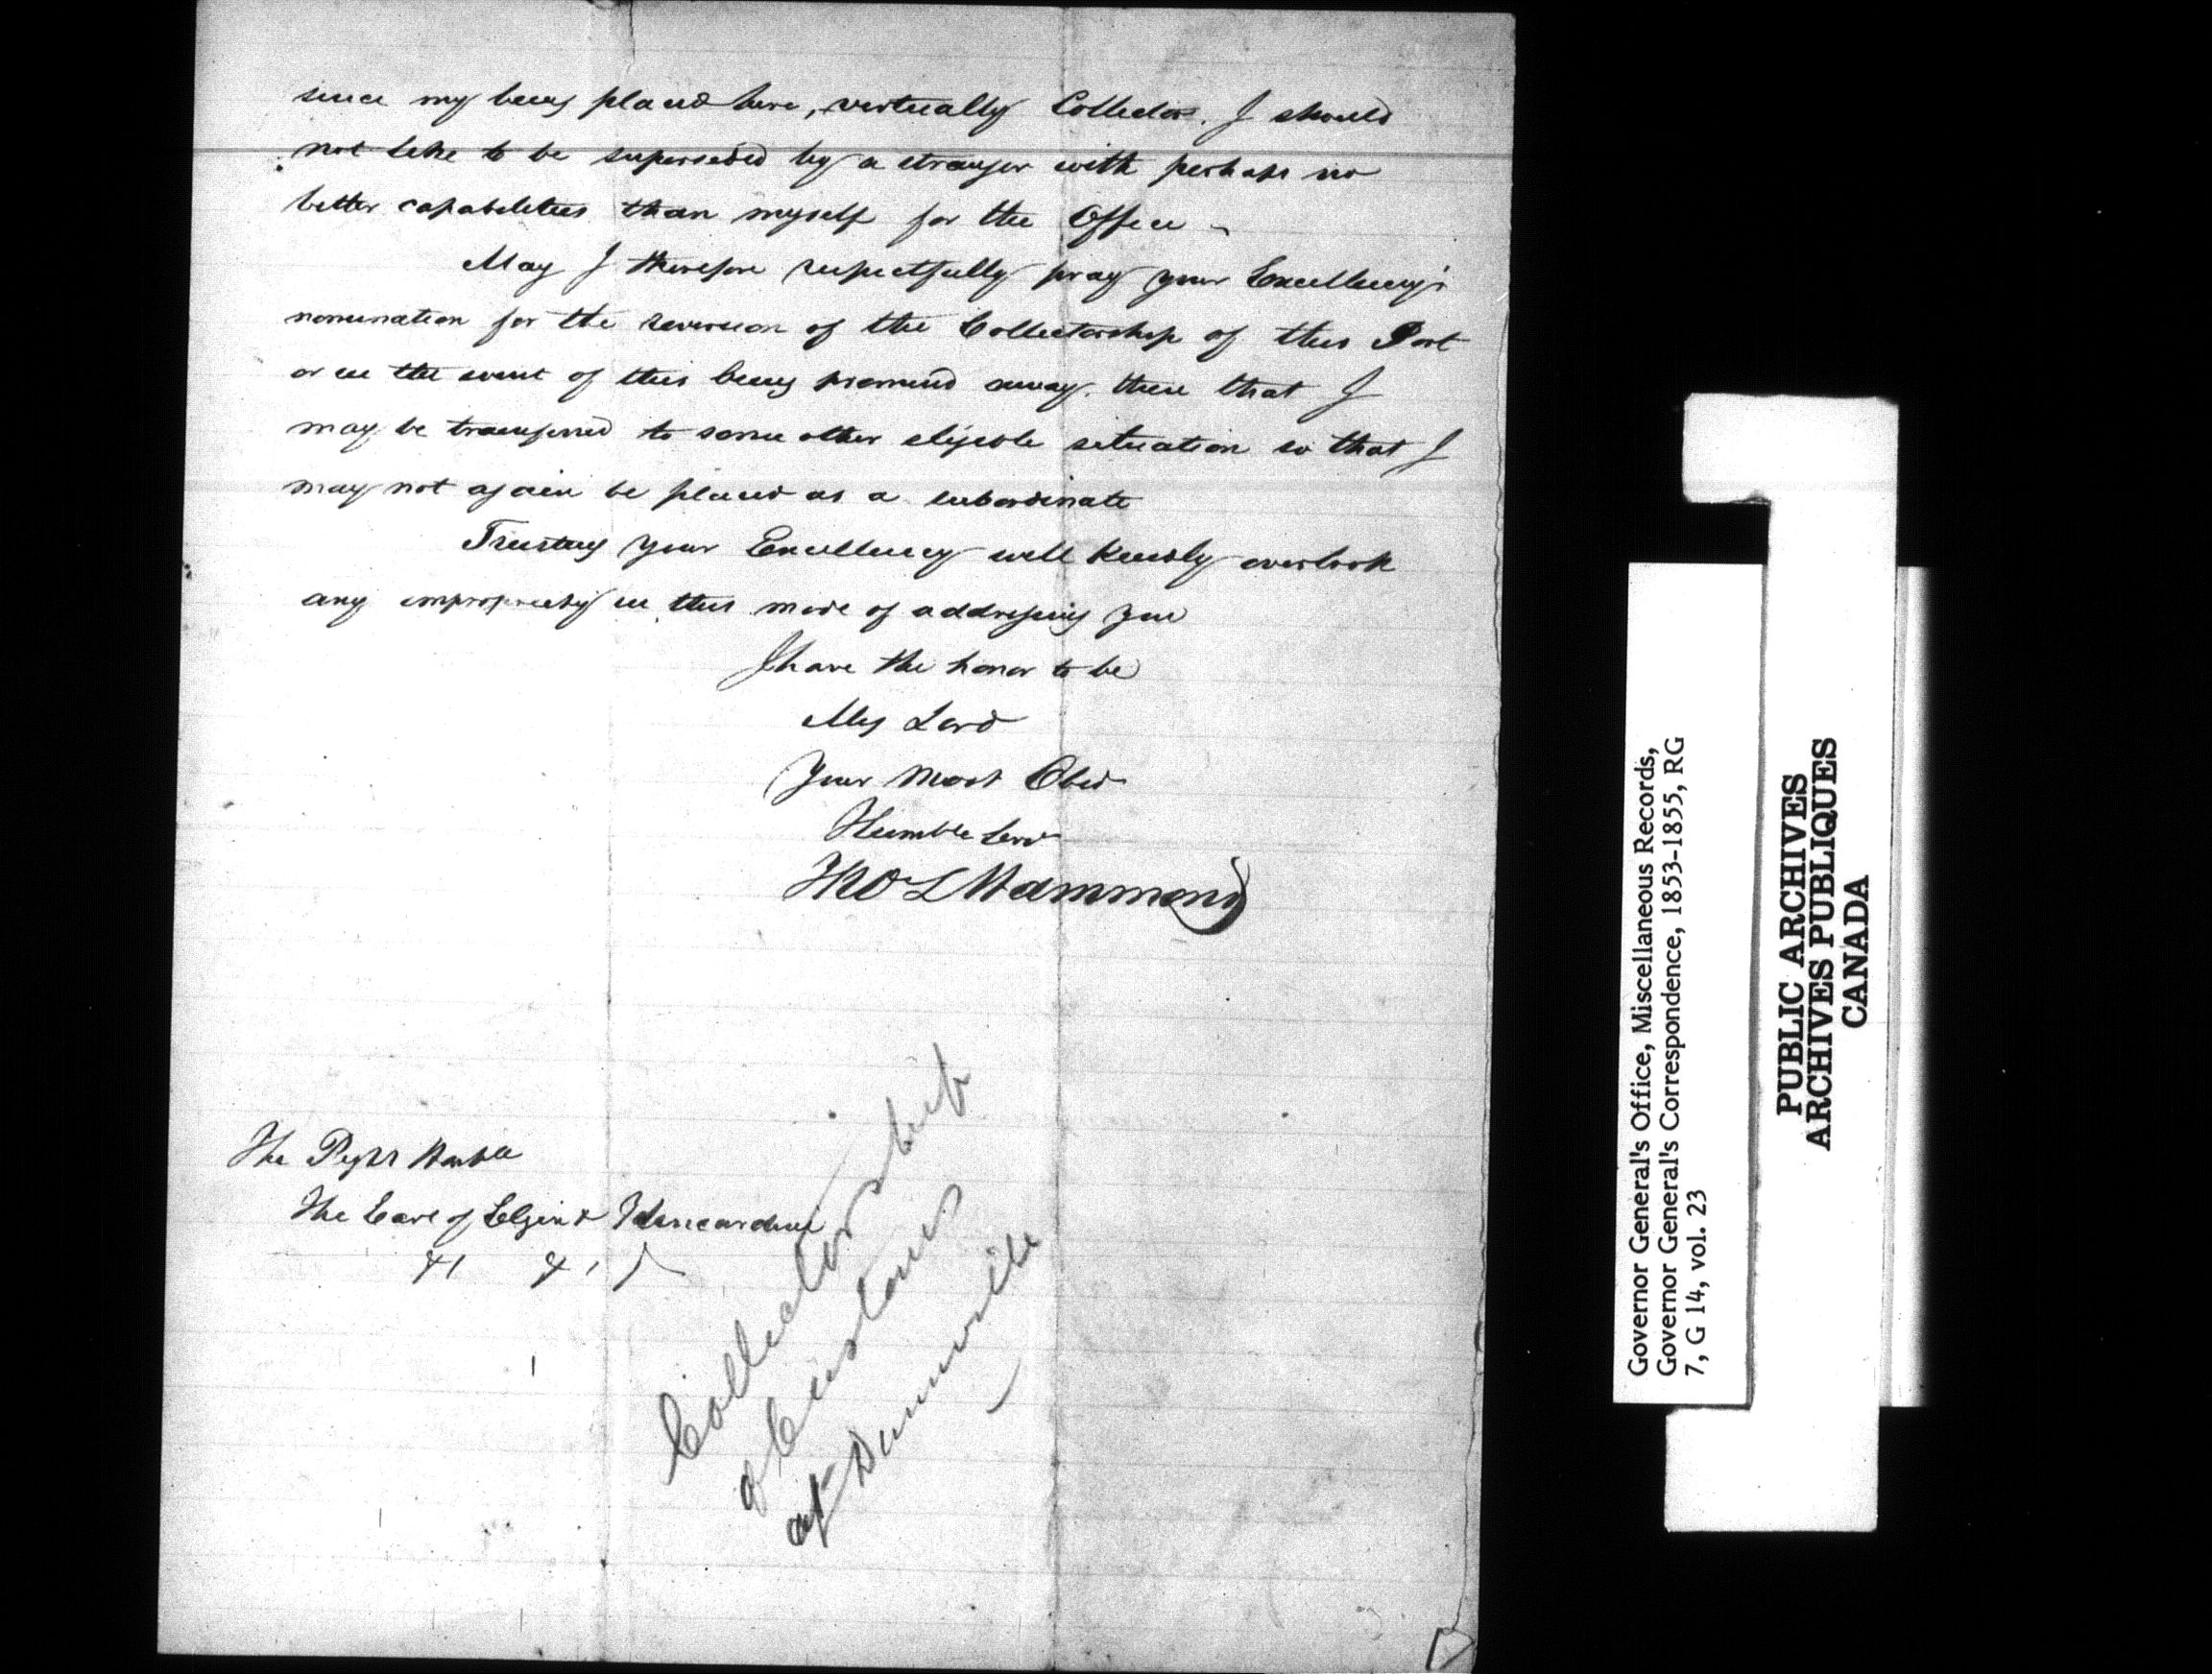 since my being placed here, virtually Collector. I should
not like to be superseded by a stranger with perhaps no
better capabilities than myself for the Office
May I therefore respectfully pray your Excellency's
nomination for the reversion of the Collectorship of this Port
or in the event of this being promised away. then that I
may be transferred to some other eligible situation so that I
may not again be placed as a subordinate
Trusting your Excellency will kindly overlook
any impropriety in this mode of addressing you
I have the honor to be
My Lord
Your Most Obed
Humble Servt
Hammond
The Right Honble
The Earl of Elgin & Kincardine
& &
Collectorship
of Customs
at Dunnville
Governor General's Office, Miscellaneous Records,
Governor General's Correspondence, 1853-1855, RG
7, G 14, vol. 23
PUBLIC ARCHIVES
ARCHIVES PUBLIQUES
CANADA